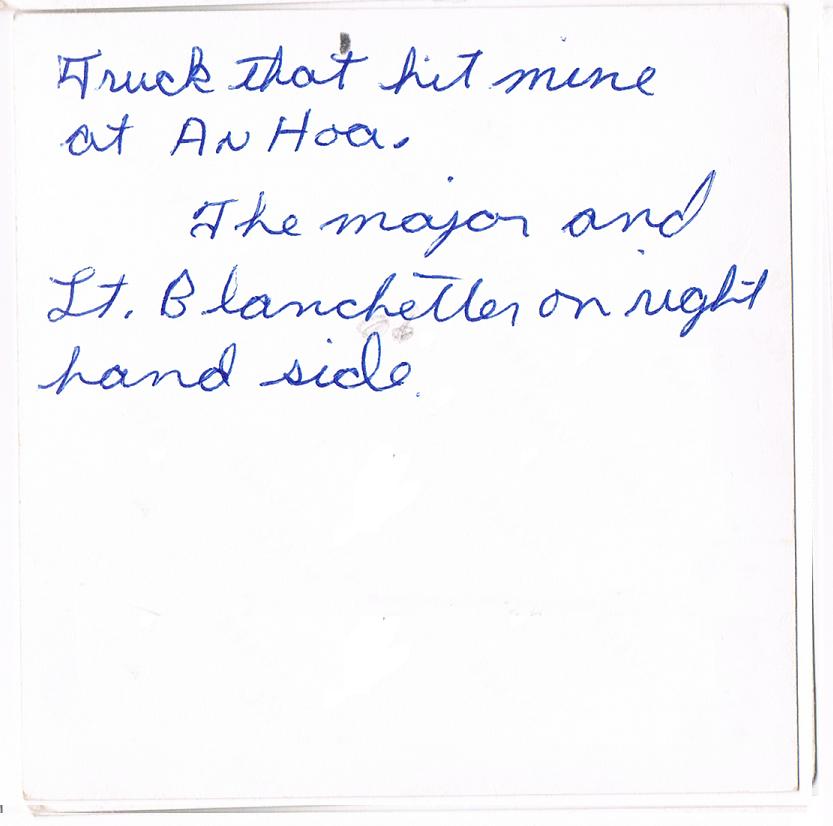 Truck that hit mine
at An Hoa.
The major and
Lt. Blanchetter on right
hand side.